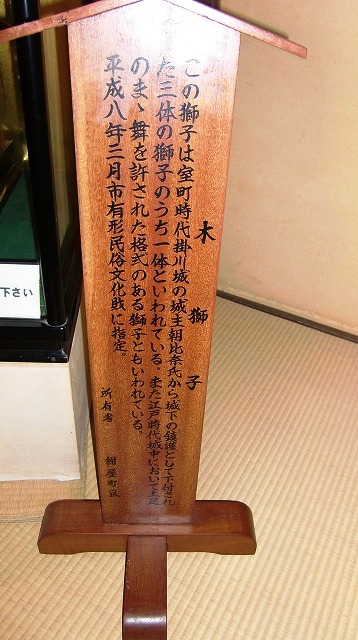 木獅子
この獅子は室町時代掛川城の城主朝比奈氏から城下の鎮護として下付され
た三体の獅子のうち一体といわれている。また江戸時代城中において土足
のまゝ舞を許された格式のある獅子ともいわれている。
平成八年三月市有形民俗文化財に指定。
所有者 紺屋町区
下さい